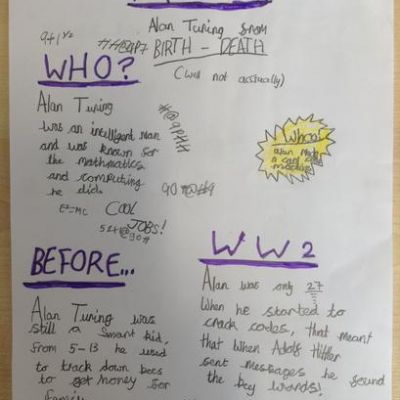 Alan Turing from
BIRTH - DEATH
(Well not actually)
WHO?
Alan Turing
was an intelligent man
and was known for
the mathmatics
and computing
he did.
E²=MC
COOL
JOBS!
Whoa!
BEFORE...
Alan Turing was
still a smart kid,
from 5-13 he used
to track down bees
to get money for
family
WW2
Alan was only 27
when he started to
crack codes, that meant
that when Adolf Hitler
sent messages he found
the key words!